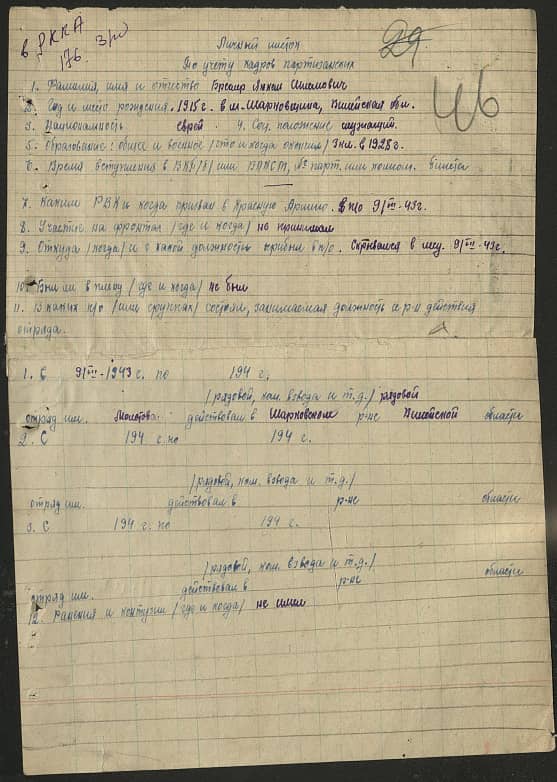 в РККА
176. З/ю
29
46
Личный листок
По учету кадров партизанских
1. Фамилия, имя и отчество Бреслер Янкель Шлемович
2. Год и место рождения. 1915 г. в м. Марковщина, Вилейская обл.
3. Национальность еврей. 4. Соц. положение служащий.
5. Образование: общее и военное /что и когда окончил/ 3 кл. в 1928 г.
6. Время вступления в ВКП/б/ или ВЛКСМ, № парт. или комсом. билета
7. Каким РВК и когда призван в Красную Армию. в п/о 9/III-43г.
8. Участие на фронтах /где и когда/ не принимал
9. Откуда /когда/ и с какой должности прибыл в п/о. Скрывался в лесу. 9/III-43г.
10. Был ли в плену /где и когда/ не был
11. В каких п/о /или группах/ состоял, занимаемая должность и р-н действия
отряда.
1. С 9/III-1943 г. по 194 г.
/рядовой, ком. взвода и т.д./ рядовой
отряд им. Молотова действовал в Марковском р-не Вилейской области
2. С 194 г. по 194 г.
/рядовой, ком. взвода и т.д./
отряд им. действовал в р-не области
3. С 194 г. по 194 г.
/рядовой, ком. взвода и т.д./
отряд им. действовал в р-не области
12. Ранения и контузии /где и когда/ не имел